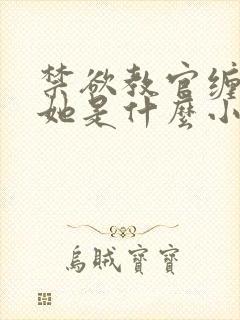 禁欲教官缠
她是什麼小
烏賊寶寶